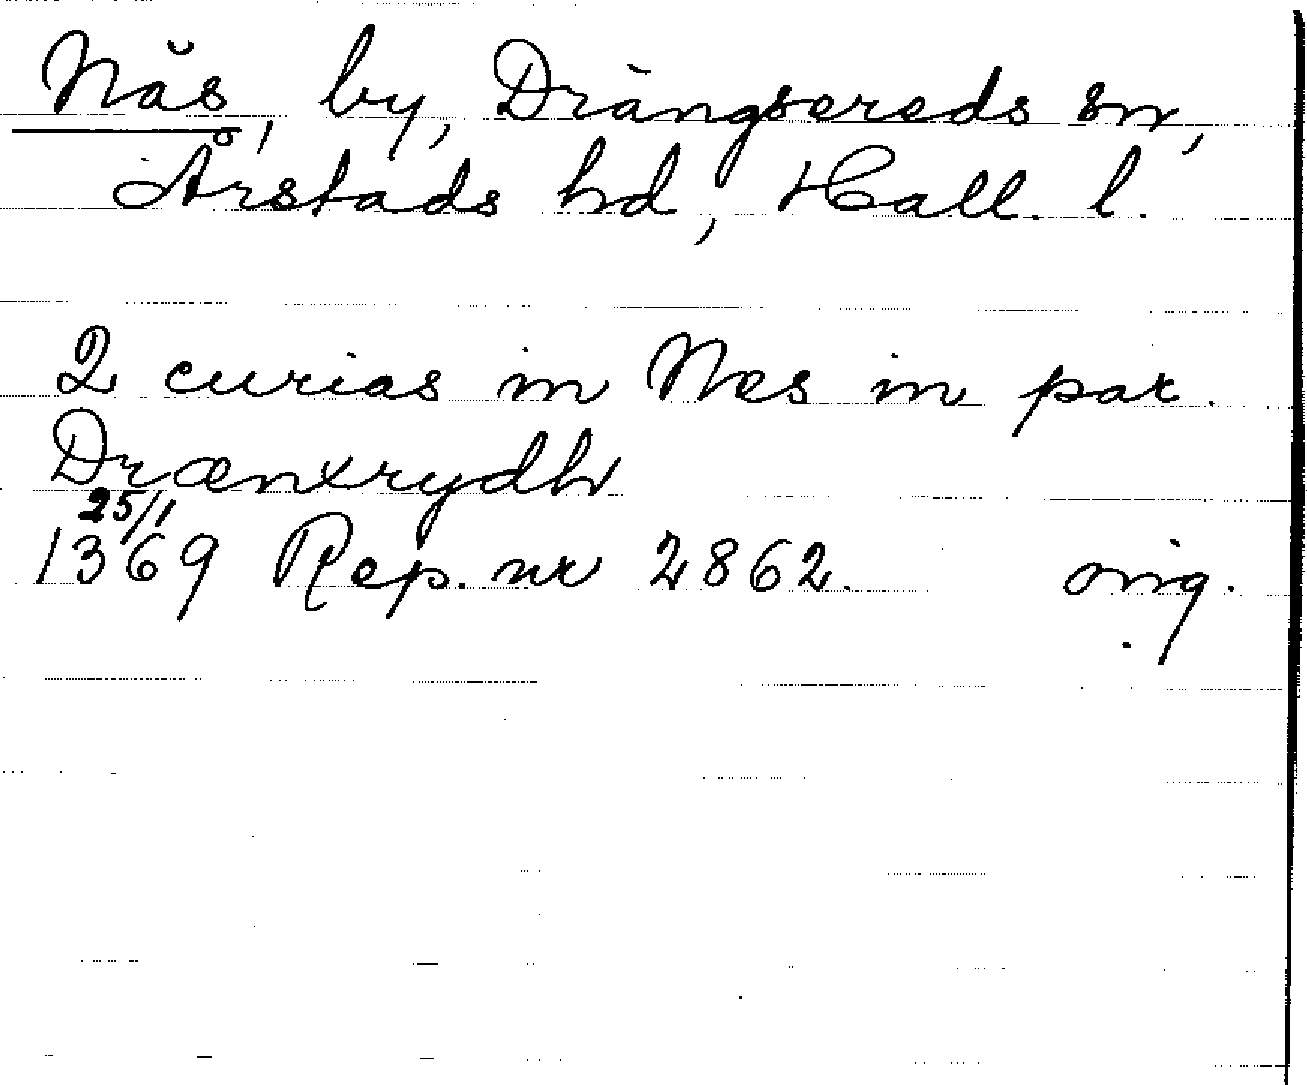 Näs, by, Drängsereds sn,
Årstads hd, Hall. l.
2 curias in Nes in par.
Drænxrydh
25/1
1369 Rep. nr 2862. orig.